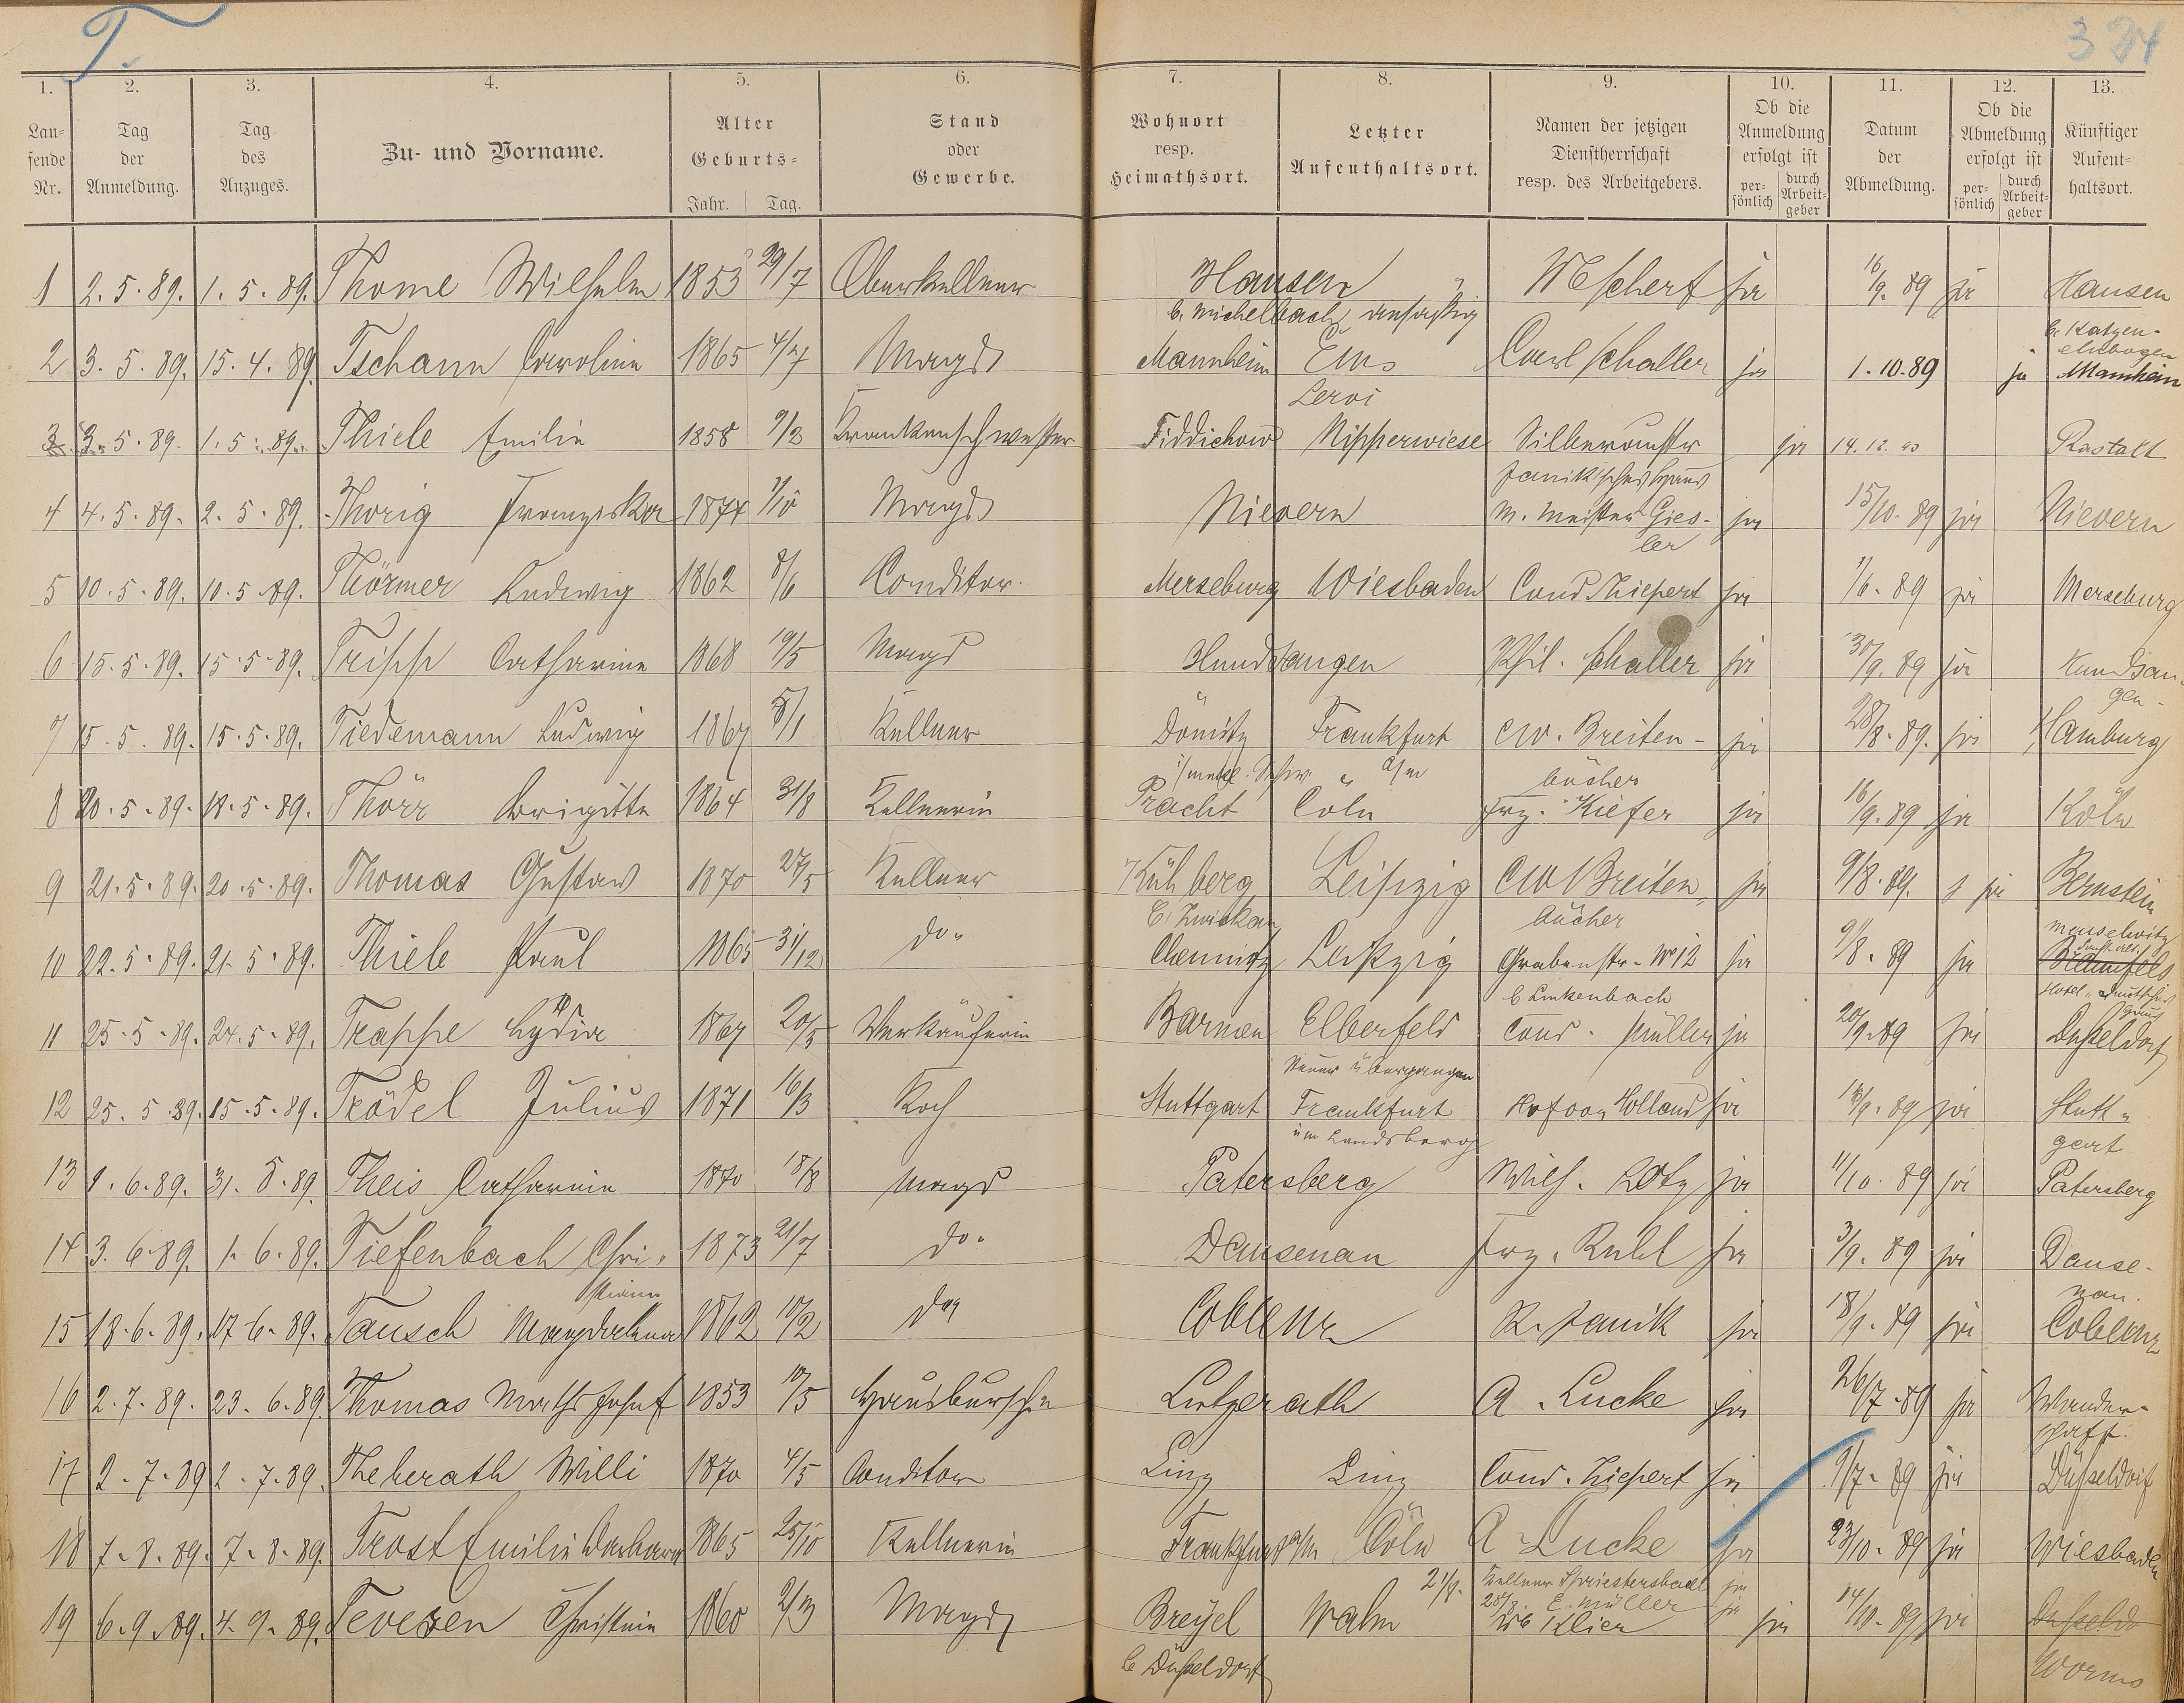 T.
324
1. 2. 3. 4. 5. 6. 7. 8. 9. 10. 11. 12. 13.
Laufende Nr.
Tag der Anmeldung.
Tag des Anzuges.
Zu- und Vorname.
Alter
Geburts-
Jahr. Tag.
Stand oder Gewerbe.
Wohnort resp. Heimathsort.
Letzter Aufenthaltsort.
Namen der jetzigen Dienstherrschaft resp. des Arbeitgebers.
Ob die Anmeldung erfolgt ist
persönlich durch Arbeitgeber
Datum der Abmeldung.
Ob die Abmeldung erfolgt ist
persönlich durch Arbeitgeber
Künftiger Aufenthaltsort.
1 2.5.89. 1.5.89. Thome Wilhelm 1853 29/7 Oberkellner Hausen ja 16/9.89 ja Hausen
b. Michelbach ansässig b. Katzenelnbogen
2 3.5.89. 15.4.89. Tschann Caroline 1865 4/7 Magd Mannheim Ems Carl Schaller ja 1.10.89 ja Mannheim
3 3.5.89. 1.5.89. Thiele Emilie 1858 9/2 Krankenschwester Fiddichow Nipperwiese Silberaustr ja Rastatt
4 4.5.89. 2.5.89. Thorig Franziska 1874 Magd Nievern M. Meister Giesler ja 15/10.89 ja Nievern
5 10.5.89. 10.5.89. Thörmer Ludwig 1862 8/6 Conditor Merseburg Wiesbaden Cond Ziepert ja 1/6.89 ja Merseburg
6 15.5.89. 15.5.89. Tripp Catharine 1868 19/5 Magd Hundsangen Phil. Schaller ja 30/9.89 ja Hundsangen
7 15.5.89. 15.5.89. Tiedemann Ludwig 1867 5/1 Kellner Dömitz Frankfurt CW. Breitenbücher ja 28/8.89. ja Hamburg
i/meckl. Schw. a/m
8 20.5.89. 18.5.89. Thörr Brigitte 1864 31/8 Kellnerin Pracht Cöln Frz. Kiefer ja 16/9.89 ja Köln
9 21.5.89. 20.5.89. Thomas Gustav 1870 27/5 Kellner Kühberg Leipzig CW Breitenbücher ja 9/8.89. ja Bernstein
b. Zwickau
10 22.5.89. 21.5.89. Thiele Paul 1865 31/12 do. Chemnitz Leipzig Grabenstr. No 12 ja 9/8.89 ja Meuselwitz
b Linkenbach
11 25.5.89. 24.5.89. Trappe Lydia 1867 20/5 Verkäuferin Barmen Elberfeld Cond. Müller ja 20/9.89 ja Düsseldorf
12 25.5.89. 15.5.89. Trödel Julius 1871 16/3 Koch Stuttgart Frankfurt Hof von Holland ja 16/9.89 ja Stuttgart
im Landsberg
13 1.6.89. 31.5.89. Theis Catharine 1870 18/8 Magd Patersberg Wilh. Lotz ja 11/10.89 ja Patersberg
14 3.6.89. 1.6.89. Tiefenbach Christiane 1873 21/7 do. Dausenau Frz. Ruhl ja 3/9.89 ja Dausenau.
15 18.6.89. 17.6.89. Tausch Magdalena 1862 10/2 do. Coblenz R. Janik ja 18/9.89 ja Coblenz
16 2.7.89. 23.6.89. Thomas Maths Josef 1853 10/5 Hausbursche Lutzerath A. Lucke ja 26/7.89 ja Wanderschaft.
17 2.7.89 2.7.89. Theberath Willi 1870 4/5 Conditor Linz Linz Cond. Ziepert ja 9/7.89 ja Düsseldorf
18 7.8.89. 7.8.89. Trost Emilie Barbara 1865 25/10 Kellnerin Frankfurt a/m Cöln A Lucke ja 23/10.89 ja Wiesbaden
21/9. Kellner Spriestersbach ja
E. Müller ja
19 6.9.89. 4.9.89. Tevesen Christine 1860 2/3 Magd Breyel Klier ja 14/10.89 ja Düsseld
b Düsseldorf Worms